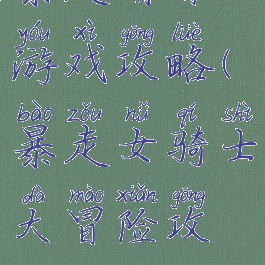 yóu xì gōng lüè
游戏攻略(
bào zǒu nǚ qí shì
暴走女骑士
dà mào xiǎn gōng
大冒险攻